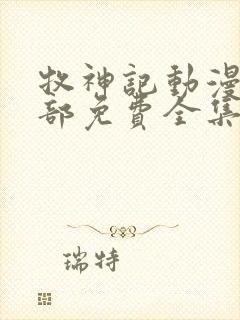 牧神記動漫
部免費全集
瑞特